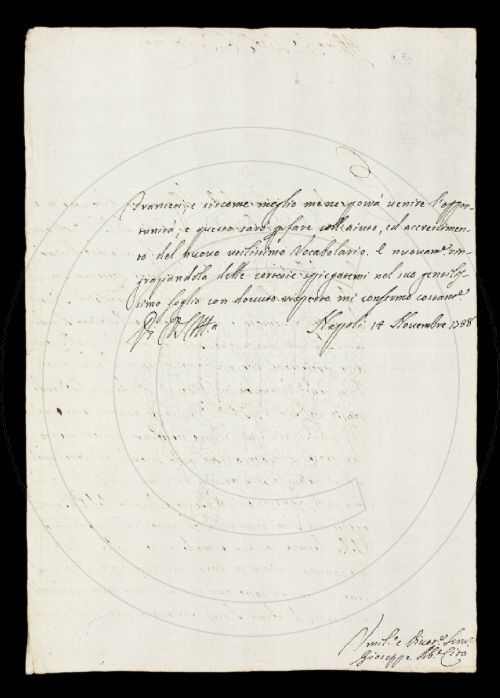 Francesi, e siccome meglio me ne potrà venire l'oppor-
tunità, e questo sarò a fare coll'aiuto, ed accrescimen-
to del nuovo utilissimo Vocabolario. E nuovam.e rin-
graziandola delle cortesie spiegatemi nel suo gentilis-
simo foglio con dovuto rispetto mi confermo costant.e
Di
Napoli 14 Novembre 1788
Umil.o e Divot.o Serv.e
Giuseppe Ab.e Cito